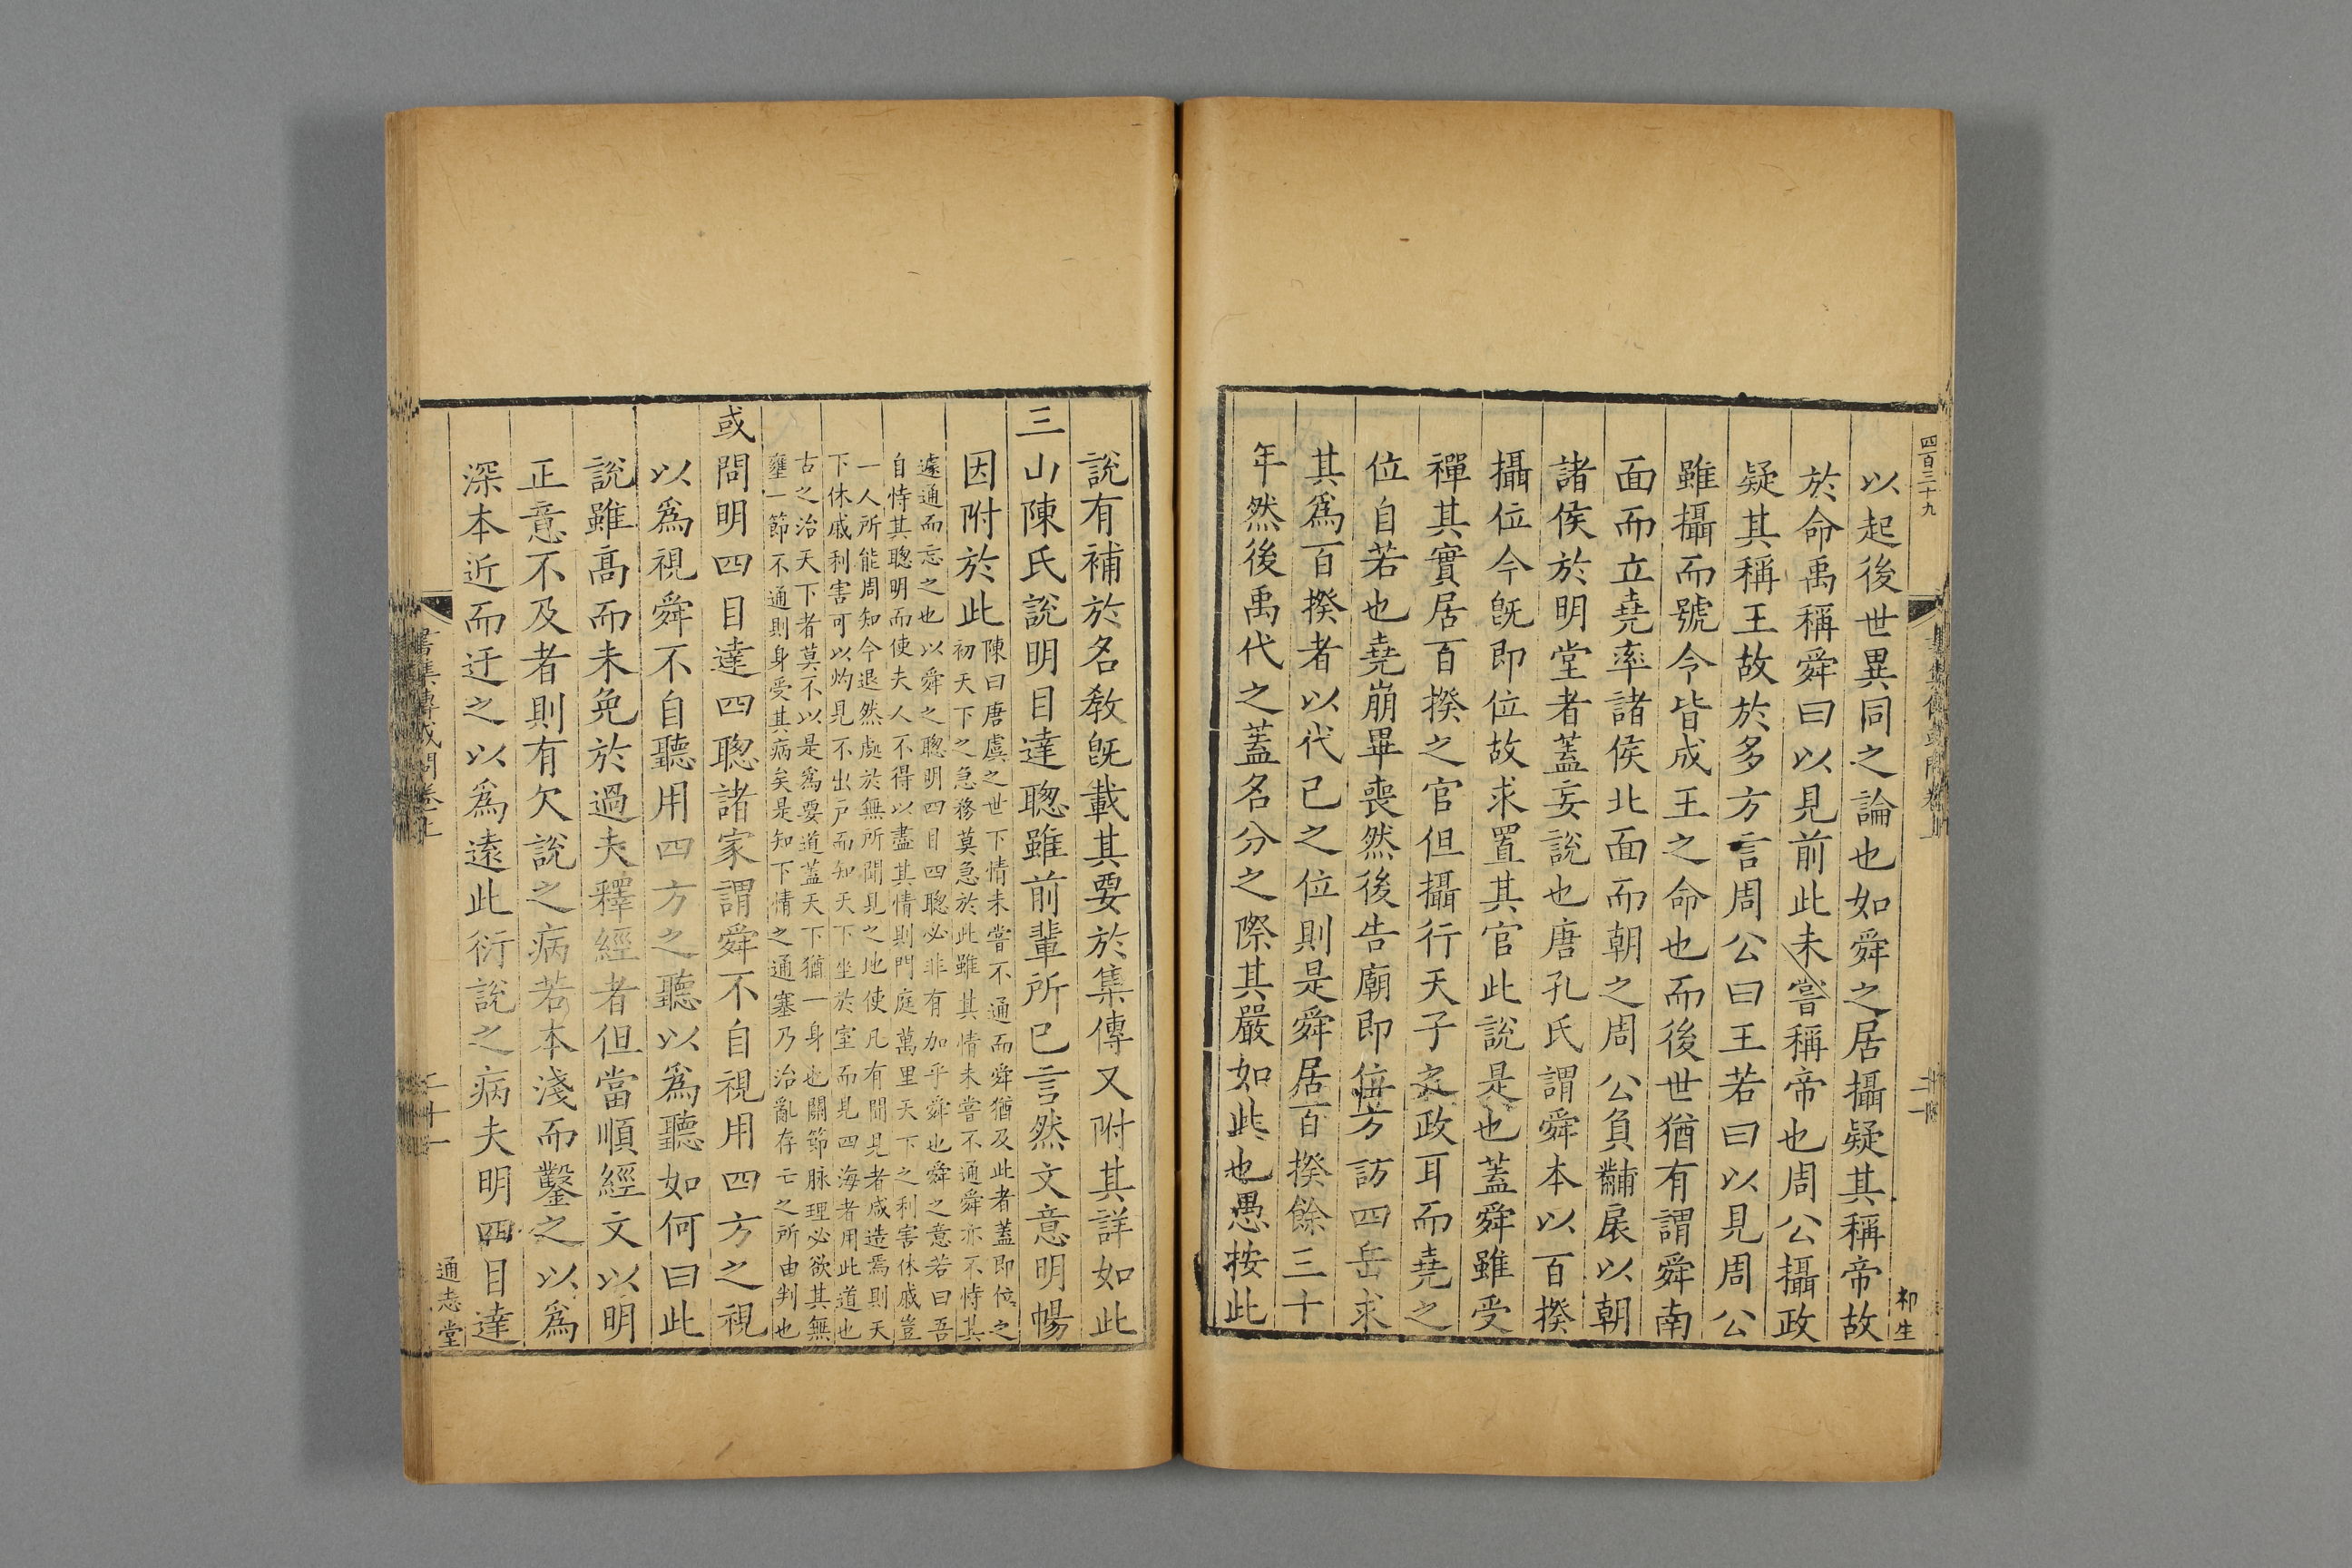 四百三十九
以起後世異同之論也如舜之居攝疑其稱帝故
於命禹稱舜曰以見前此未嘗稱帝也周公攝政
疑其稱王故於多方言周公曰王若曰以見周公
雖攝而號令皆成王之命也而後世猶有謂舜南
面而立堯率諸侯北面而朝之周公負黼扆以朝
諸侯於明堂者蓋妄說也唐孔氏謂舜本以百揆
攝位今旣即位故求置其官此說是也蓋舜雖受
禪其實居百揆之官但攝行天子之政耳而堯之
位自若也堯崩畢喪然後告廟即位方訪四岳求
其爲百揆者以代已之位則是舜居百揆餘三十
年然後禹代之蓋名分之際其嚴如此也愚按此
說有補於名敎旣載其要於集傳又附其詳如此
三山陳氏說明目達聰雖前輩所已言然文意明暢
因附於此
陳曰唐虞之世下情未嘗不通而舜猶及此者蓋即位之
初天下之急務莫急於此雖其情未嘗不通舜亦不恃其
遽通而忘之也以舜之聰明四目四聰必非有加乎舜也舜之意若曰吾
自恃其聰明而使夫人不得以盡其情則門庭萬里天下之利害休戚豈
一人所能周知今退然處於無所聞見之地使凡有聞見者咸造焉則天
下休戚利害可以灼見不出戶而知天下坐於室而見四海者用此道也
古之治天下者莫不以是爲要道蓋天下猶一身也關節脉理必欲其無
壅一節不通則身受其病矣是知下情之通塞乃治亂存亡之所由判也
或問明四目達四聰諸家謂舜不自視用四方之視
以爲視舜不自聽用四方之聽以爲聽如何曰此
說雖高而未免於過夫釋經者但當順經文以明
正意不及者則有欠說之病若本淺而鑿之以爲
深本近而迂之以爲遠此衍說之病夫明四目達
書集傳或問卷上
二十一
通志堂